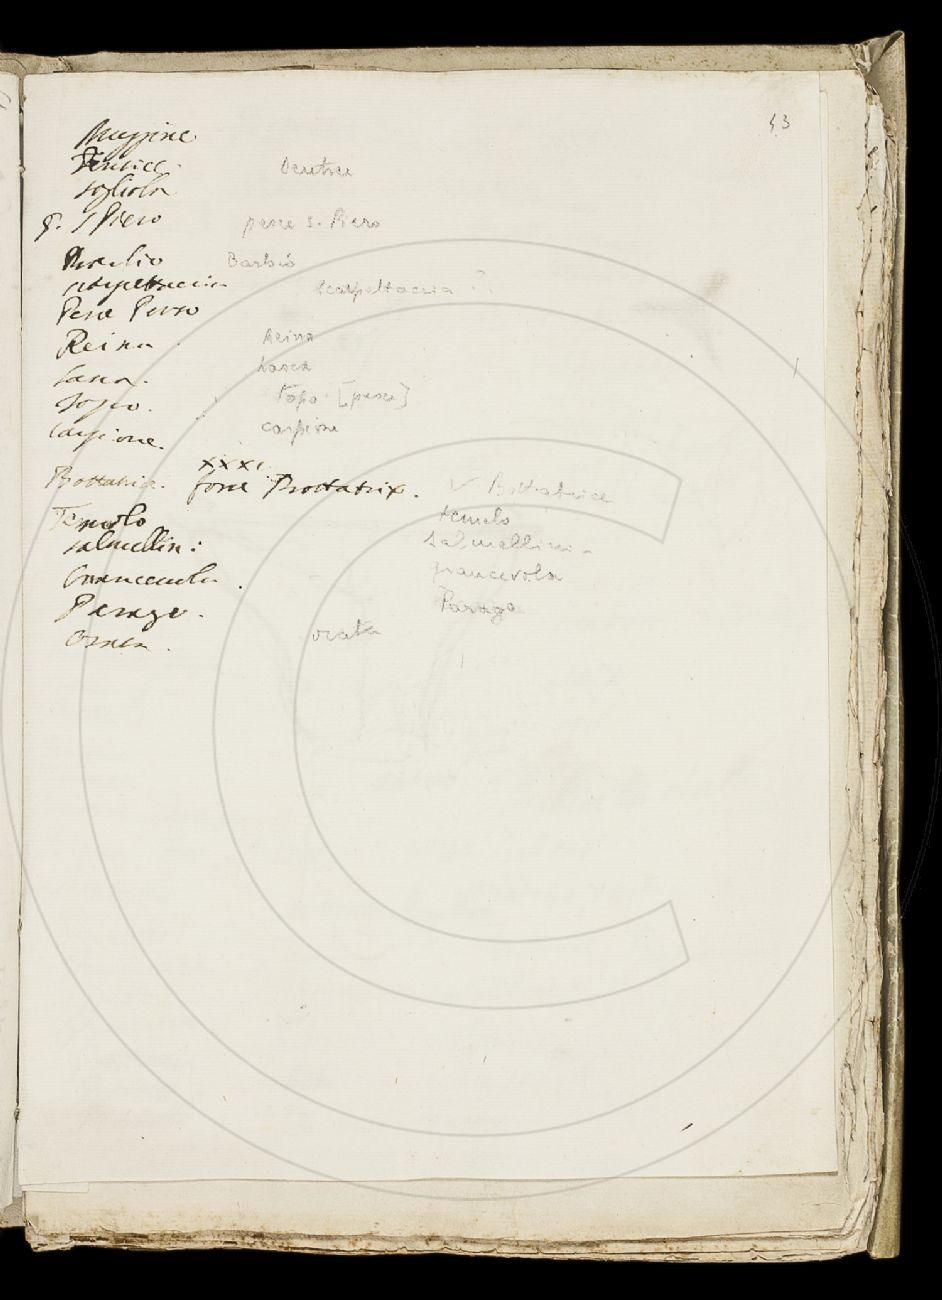 53
Muggine
Dentice. Dentice
sogliola
p. S Piero pesce S. Piero
Barbio Barbio
scarpettaccia scarpettaccia ?
Pesce Perso
Reina Reina
Lasca. Lasca
Topo. Topo [pesce]
Carpione. carpione
XXXI.
Bottatrice. forse Bottatrix. v Bottatrice
Temolo temolo
salmellini: Salmellini.
Grancevola. grancevola
Parago. Parago
Orata. orata